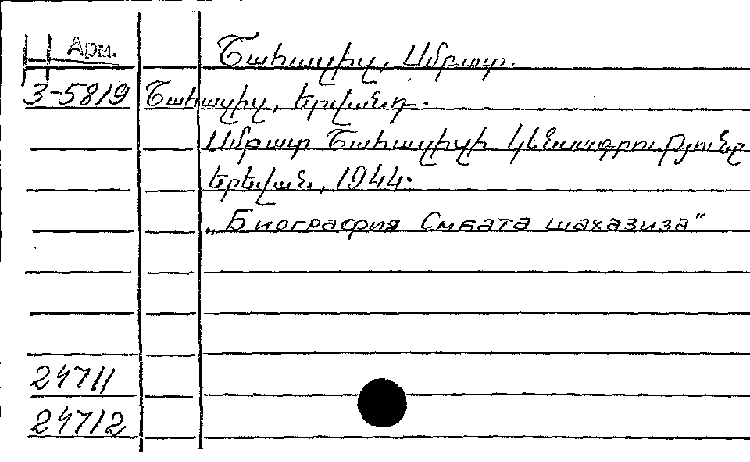 Н Арм.
Շահազիզ, Սմբատ.
3-5819 Շահազիզ, Երվանդ.
Սմբատ Շահազիզի կենսագրությունը
Երևան, 1944.
„Биография Смбата Шахазиза"
24711
24712